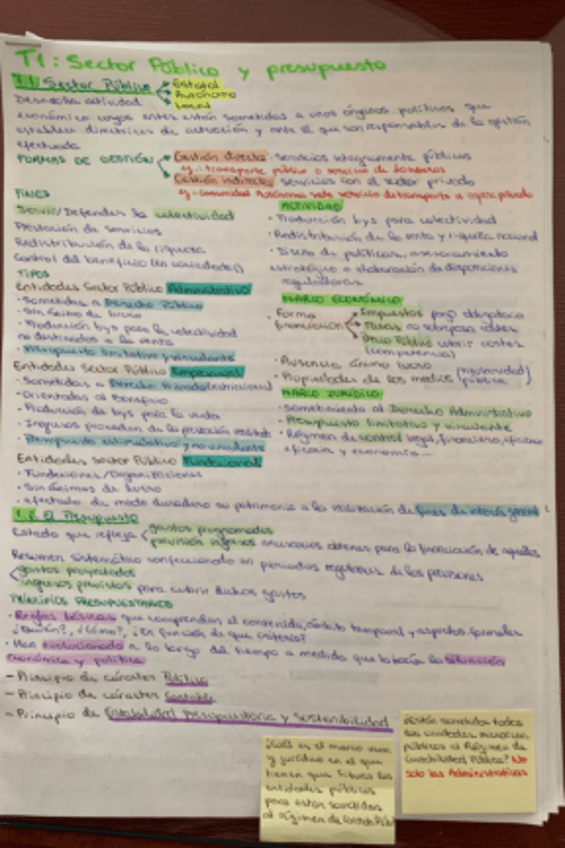 T1: Sector Público y presupuesto
1.1. Sector Público
Estatal
Autónomo
Local
Desarrolla actividad
económica cuyos entes están sometidos a otros órganos políticos que
establecen directrices de actuación y ante el que son responsables de la gestión
efectuada
FORMAS DE GESTIÓN
Gestión directa: servicios íntegramente públicos
ej.: transporte público o servicio de bomberos
Gestión indirecta: servicios con el sector privado
ej.: Comunidad Autónoma saca servicio de transporte a operador privado
FINES
Servir/Defender la colectividad
Prestación de servicios
Redistribución de la riqueza
Control del beneficio (en sociedades)
TIPOS
Entidades Sector Público Administrativo
· Sometidas a Derecho Público
· Sin ánimo de lucro
· Producción bys para la colectividad
no destinados a la venta
· Presupuesto limitativo y vinculante
Entidades Sector Público Empresarial
· Sometidas a Derecho Privado
· Orientadas al beneficio
· Producción de bys para la venta
· Ingresos proceden de la prestación
· Presupuesto estimativo y no vinculante
Entidades Sector Público Fundacional
· Fundaciones/Organizaciones
· Sin ánimos de lucro
· afectado de modo duradero su patrimonio a la realización de fines de interés general
ACTIVIDAD
· Producción bys para colectividad
· Redistribución de la renta y riqueza nacional
· Diseño de políticas, asesoramiento
estratégico o elaboración de disposiciones
reguladoras
MARCO ECONÓMICO
· Forma financiación
Impuestos pago obligatorio
Tasas no sobrepasa costes
Precio Público cubrir costes
(competencia)
· Ausencia ánimo lucro
· Propiedades de los medios pública
MARCO JURÍDICO
· Sometimiento al Derecho Administrativo
· Presupuesto limitativo y vinculante
· Régimen de control legal, financiero, eficiencia
eficacia y economía...
1.2. El Presupuesto
Estado que refleja
gastos programados
previsión ingresos necesarios obtener para la financiación de aquellos
Resumen sistemático confeccionado en periodos regulares de las previsiones
gastos proyectados
ingresos previstos para cubrir dichos gastos
PRINCIPIOS PRESUPUESTARIOS
· Reglas básicas que comprenden el contenido, ámbito temporal y aspectos formales
¿Quién?, ¿Cómo?, ¿En función de que criterio?
· Han evolucionado a lo largo del tiempo a medida que lo hacía la situación
económica y política
- Principio de carácter Político
- Principio de carácter Contable
- Principio de Estabilidad presupuestaria y sostenibilidad
¿Cuál es el marco
y jurídico en el que
tienen que situarse las
entidades públicas
para estar sometidas
al régimen de Contab Púb?
¿Están sometidas todas
las unidades
públicas al Régimen de
Contabilidad Pública? No
solo las Administrativas